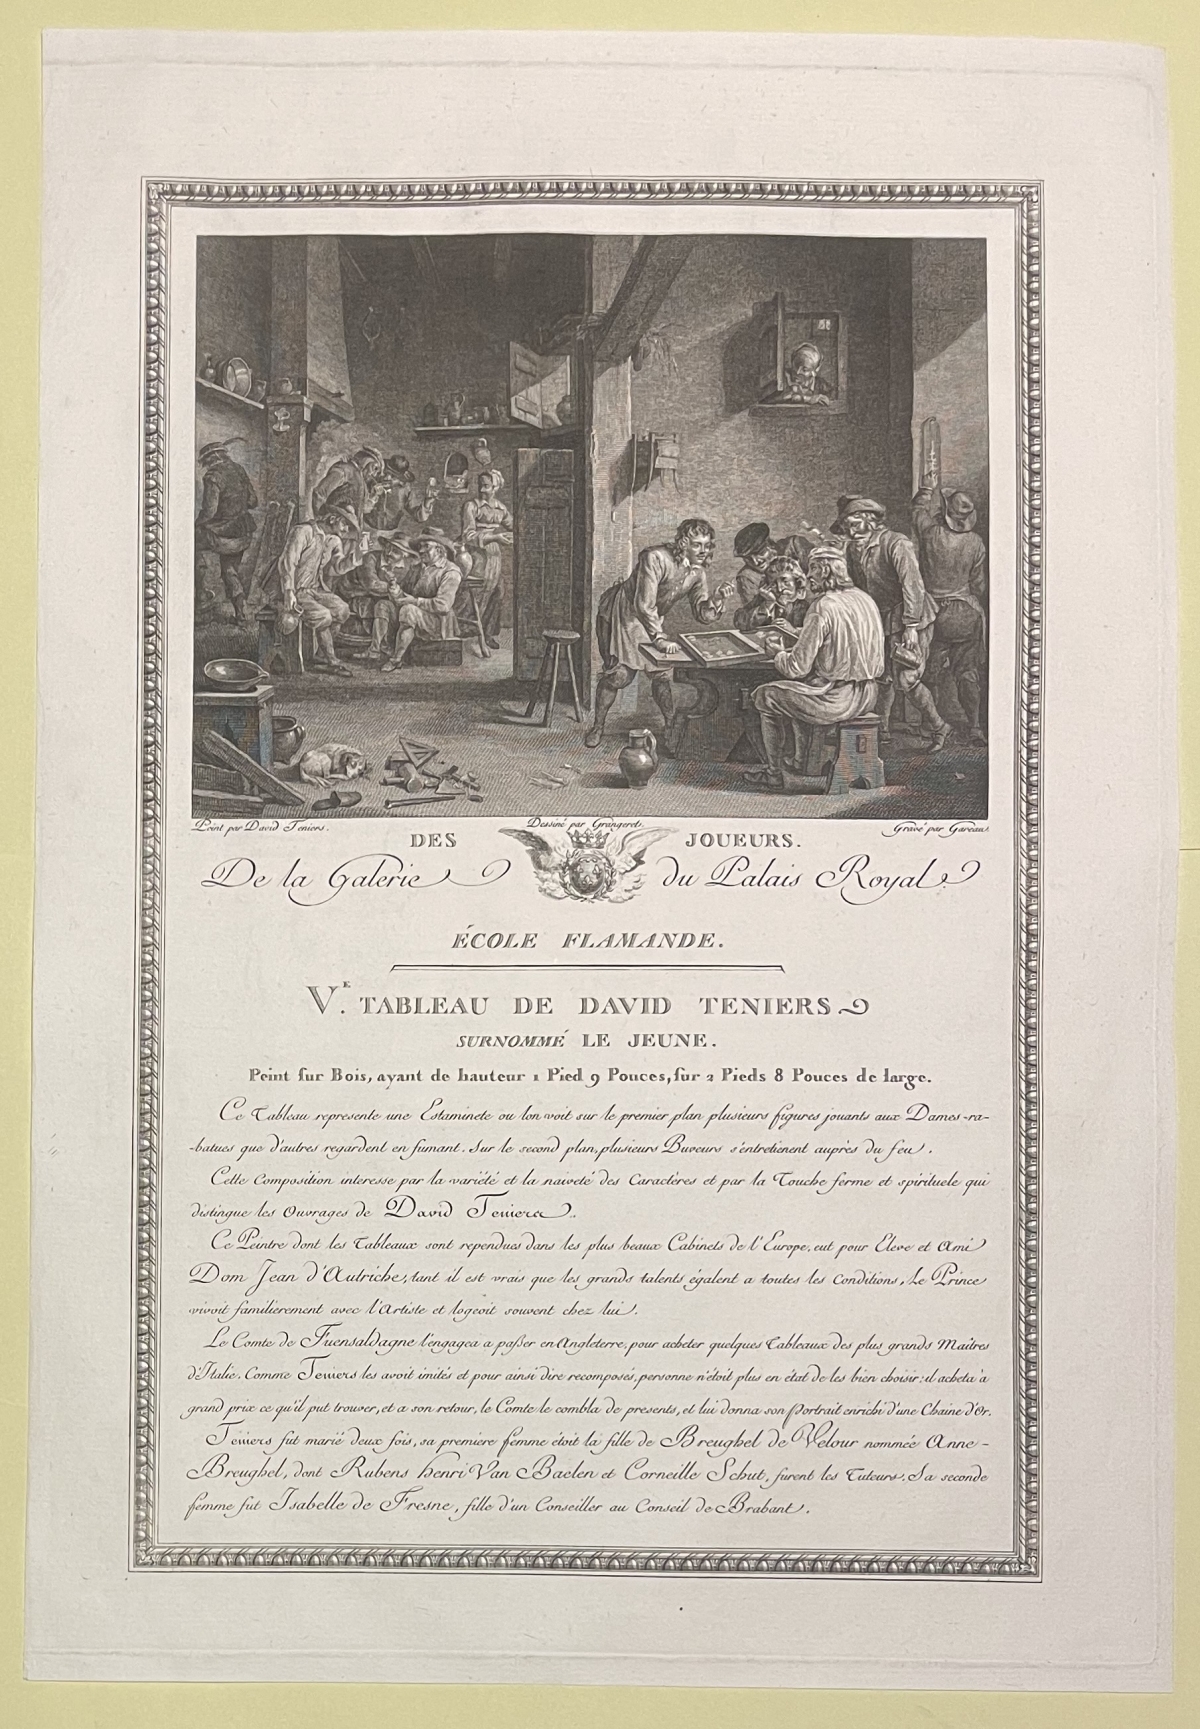 Peint par David Teniers.
Dessiné par Grangeret.
Gravé par Gareau.
DES JOUEURS.
De la Galerie du Palais Royal.
ÉCOLE FLAMANDE.
V.E TABLEAU DE DAVID TENIERS
SURNOMMÉ LE JEUNE.
Peint sur Bois, ayant de hauteur 1 Pied 9 Pouces, sur 2 Pieds 8 Pouces de large.
Ce Tableau represente une Estaminete ou lon voit sur le premier plan plusieurs figures jouants aux Dames-ra-
-batues que d'autres regardent en fumant. Sur le second plan, plusieurs Buveurs s'entretienent auprès du feu.
Cette Composition interesse par la variété et la naiveté des Caractères et par la Touche ferme et spirituele qui
distingue les Ouvrages de David Teniers.
Ce Peintre dont les Tableaux sont rependues dans les plus beaux Cabinets de l'Europe, eut pour Eleve et Ami
Dom Jean d'Autriche, tant il est vrais que les grands talents égalent a toutes les Conditions, Le Prince
vivoit familierement avec l'Artiste et logeoit souvent chez lui.
Le Comte de Fuensaldagne l'engagea a passer en Angleterre, pour acheter quelques Tableaux des plus grands Maitres
d'Italie. Comme Teniers les avoit imités et pour ainsi dire recomposés, personne n'étoit plus en état de les bien choisir: il acheta à
grand prix ce qu'il put trouver, et a son retour, le Comte le combla de presents, et lui donna son Portrait enrichi d'une Chaine d'Or.
Teniers fut marié deux fois, sa premiere femme étoit la fille de Breughel de Velour nommée Anne-
Breughel, dont Rubens Henri Van Baelen et Corneille Schut, furent les Tuteurs. Sa seconde
femme fut Isabelle de Fresne, fille d'un Conseiller au Conseil de Brabant.